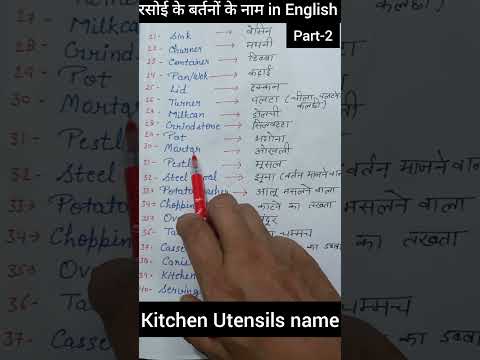 रसोई के बर्तनों के नाम in English
Part-2
21- Sink → बेसिन
22- Churner → मथनी
23- Container → डिब्बा
24- Pan/Wok → कढाई
25- Lid → ढक्कन
26- Turner → पलटा
Milkcan → डोलची
28- Grindstone → सिलबट्टा
29- Pot → भगोना
30- Mortar → ओखली
31- Pestl → मूसल
32- Steel → झूना (बर्तन माजने वा
33- Potato → आलू मसलने वाला
34- Choppin → काटने का तख्ता
35- Ov
36- Ta चम्मच
37- Casse
38- Canis
39- Kitchen
40- Serving
Milkcan
Pot
30- Mortar
31- Pestl
32- Steel
33- Potato
34- Chopping
35- Ov
36- Ta
37- Casse
मसलने वाला
का तख्ता
चम्मच
Kitchen Utensils name